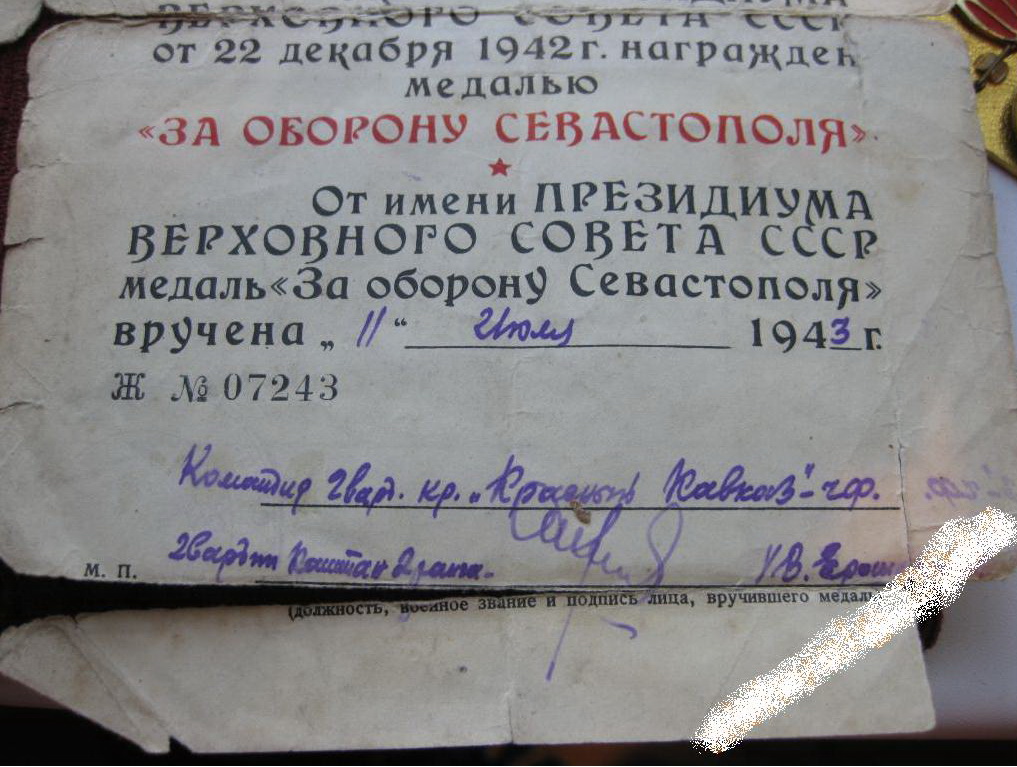 ВЕРХОВНОГО СОВЕТА СССР
от 22 декабря 1942 г. награжден
медалью
«ЗА ОБОРОНУ СЕВАСТОПОЛЯ»
От имени ПРЕЗИДИУМА
ВЕРХОВНОГО СОВЕТА СССР
медаль «За оборону Севастополя»
вручена „11“ Июля 1943 г.
Ж № 07243
Командир гвард. кр. „Красный Кавказ“ – ЧФ.
Гвардии Капитан 2 ранга
М. П.
(должность, военное звание и подпись лица, вручившего медаль